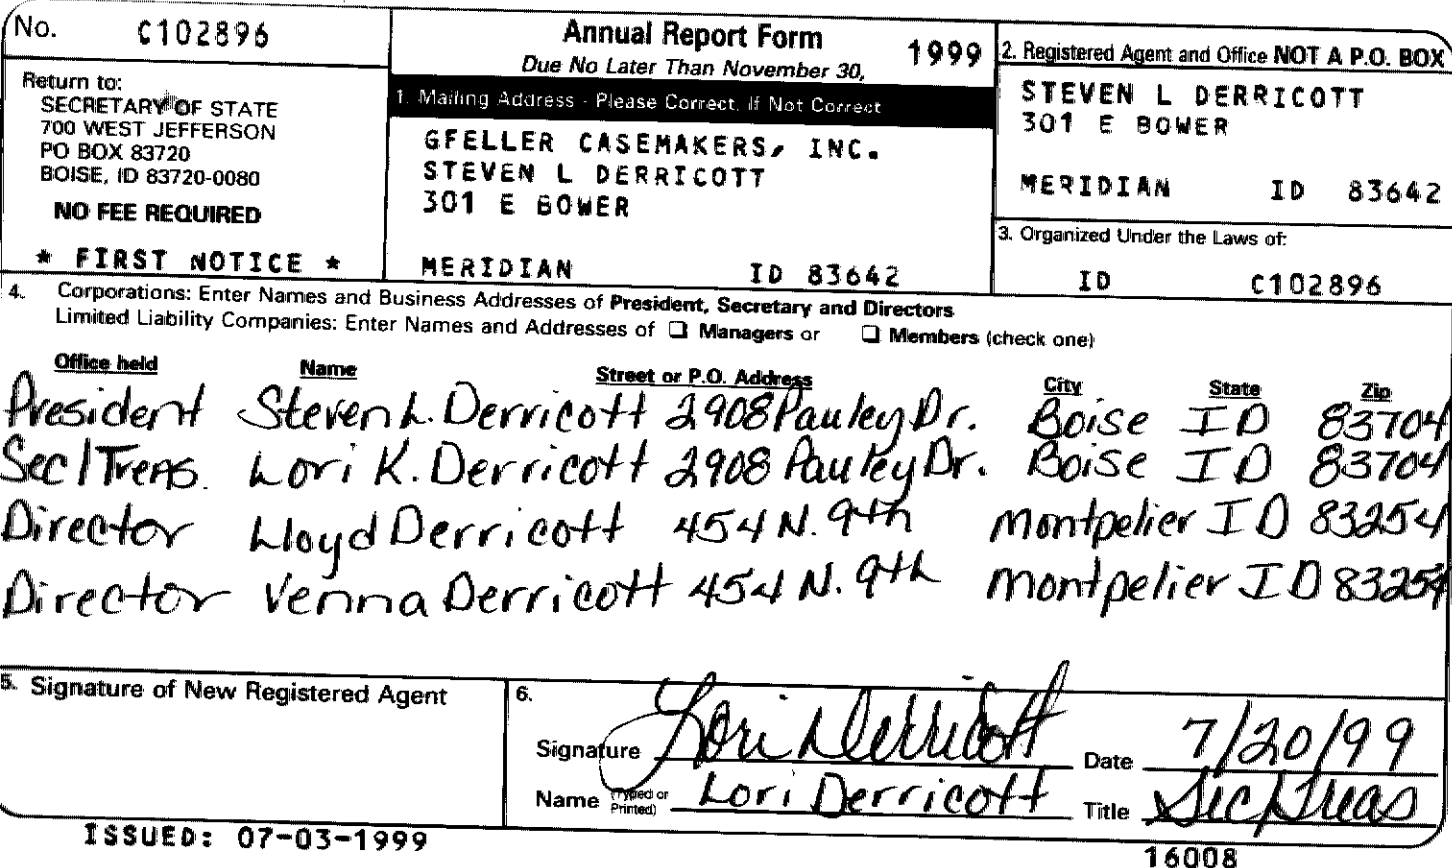 No. C102896
Return to:
SECRETARY OF STATE
700 WEST JEFFERSON
PO BOX 83720
BOISE, ID 83720-0080
NO FEE REQUIRED
* FIRST NOTICE *
Annual Report Form 1999
Due No Later Than November 30,
1. Mailing Address - Please Correct, If Not Correct
GFELLER CASEMAKERS, INC.
STEVEN L DERRICOTT
301 E BOWER
MERIDIAN ID 83642
2. Registered Agent and Office NOT A P.O. BOX
STEVEN L DERRICOTT
301 E BOWER
MERIDIAN ID 83642
3. Organized Under the Laws of:
ID C102896
4. Corporations: Enter Names and Business Addresses of President, Secretary and Directors
Limited Liability Companies: Enter Names and Addresses of ❑ Managers or ❑ Members (check one)
Office held Name Street or P.O. Address City State Zip
President Steven L. Derricott 2908 Pauley Dr. Boise ID 83704
Sec/Treas. Lori K. Derricott 2908 Pauley Dr. Boise ID 83704
Director Lloyd Derricott 454 N. 9th Montpelier ID 83254
Director Venna Derricott 454 N. 9th Montpelier ID 83254
5. Signature of New Registered Agent
6.
Signature Lori Derricott Date 7/20/99
Name (Typed or Printed) Lori Derricott Title Sec/Treas
ISSUED: 07-03-1999
16008